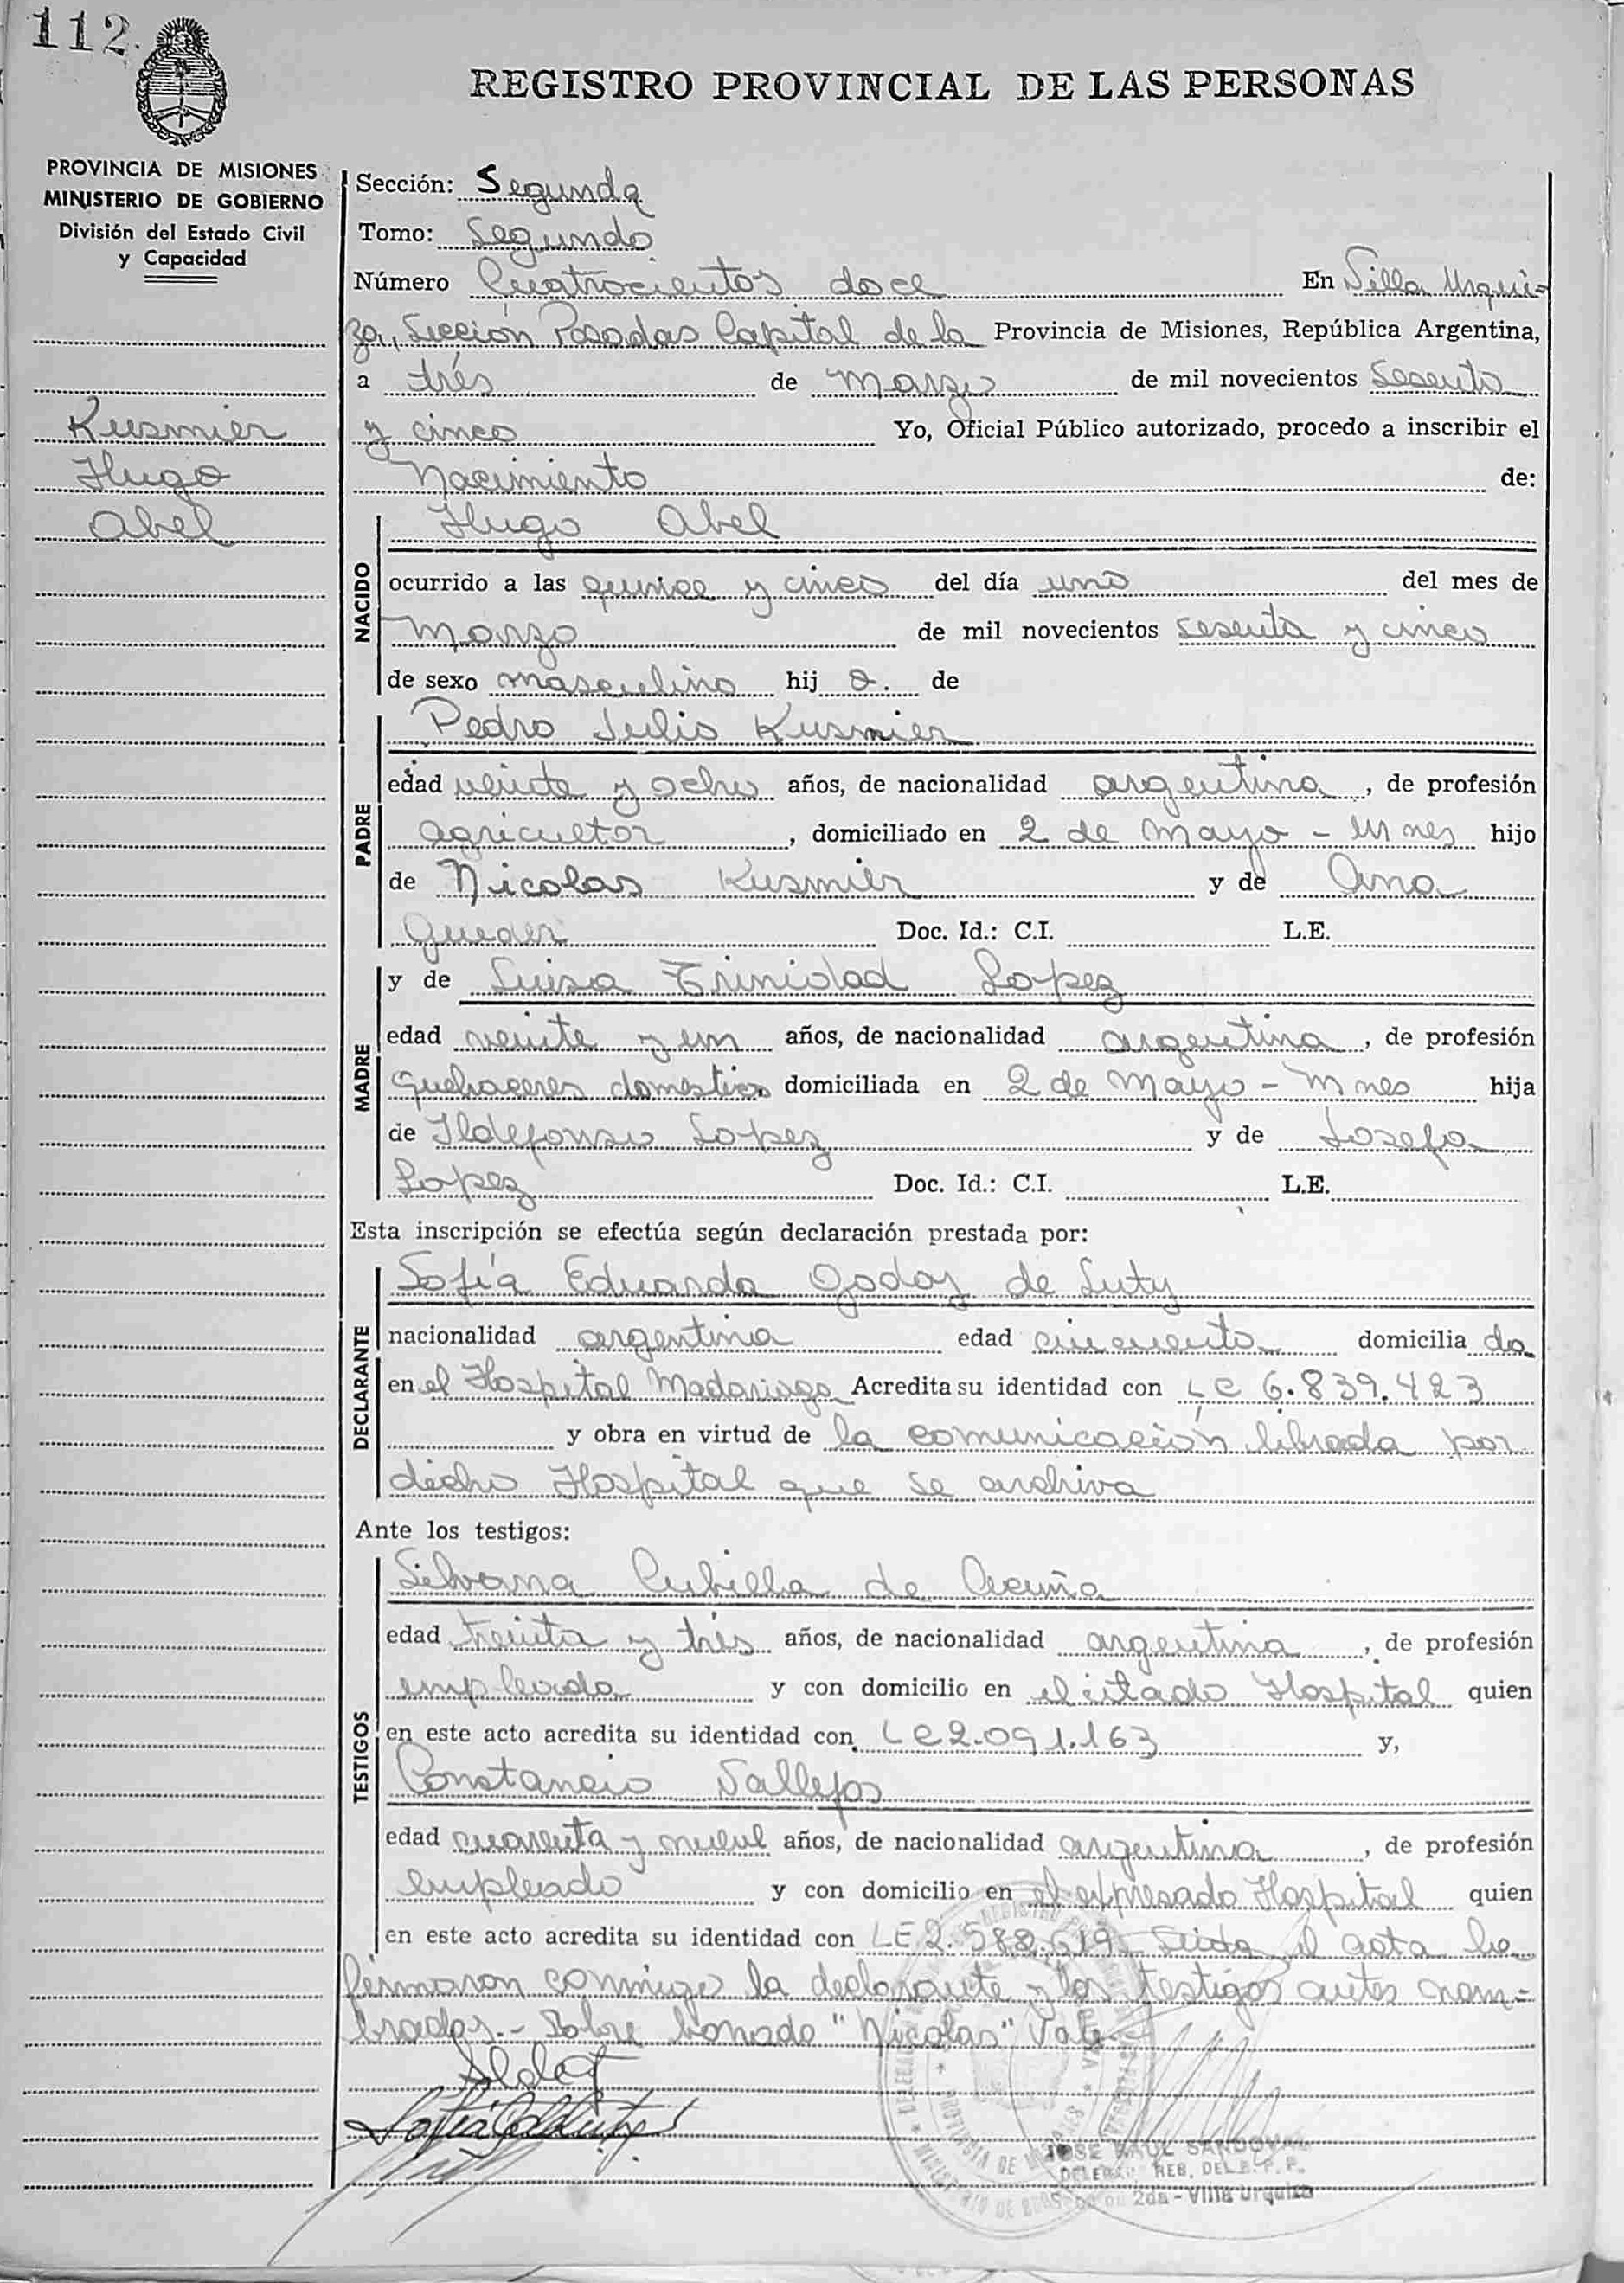 112.
REGISTRO PROVINCIAL DE LAS PERSONAS
PROVINCIA DE MISIONES
MINISTERIO DE GOBIERNO
División del Estado Civil
y Capacidad
Kusmier
Hugo
Abel
Sección: Segunda
Tomo: Segundo
Número Cuatrocientos doce En Villa Urqui-
za, Sección Posadas Capital de la Provincia de Misiones, República Argentina,
a trés de Marzo de mil novecientos Sesenta
y cinco Yo, Oficial Público autorizado, procedo a inscribir el
Nacimiento de:
Hugo Abel
NACIDO
ocurrido a las quince y cinco del día uno del mes de
Marzo de mil novecientos sesenta y cinco
de sexo masculino hij o. de
PADRE
Pedro Julio Kusmier
edad veinte y ocho años, de nacionalidad argentina, de profesión
agricultor, domiciliado en 2 de Mayo - Mnes hijo
de Nicolas Kusmier y de Ana
Doc. Id.: C.I. L.E.
MADRE
y de Luisa Trinidad Lopez
edad veinte y un años, de nacionalidad argentina, de profesión
quehaceres domesticos domiciliada en 2 de Mayo - Mnes hija
de Ildefonso Lopez y de Josefa
Lopez Doc. Id.: C.I. L.E.
Esta inscripción se efectúa según declaración prestada por:
DECLARANTE
Sofía Eduarda Godoy de Luty
nacionalidad argentina edad cincuenta domicilia da
en el Hospital Madariaga Acredita su identidad con LC 6.839.423
y obra en virtud de la comunicación librada por
dicho Hospital que se archiva
Ante los testigos:
TESTIGOS
Silvana Cubilla de Acuña
edad treinta y trés años, de nacionalidad argentina, de profesión
empleada y con domicilio en el citado Hospital quien
en este acto acredita su identidad con LC 2.091.163 y,
Constancio Vallejos
edad cuarenta y nueve años, de nacionalidad argentina, de profesión
empleado y con domicilio en el expresado Hospital quien
en este acto acredita su identidad con LE 2.588.619 Leida el acta la
firmaron conmigo la declarante y los testigos antes nom-
brados.- Sobre borrado "Nicolas" Vale.-
JOSE RAUL SANDOVAL
2da - Villa Urquiza